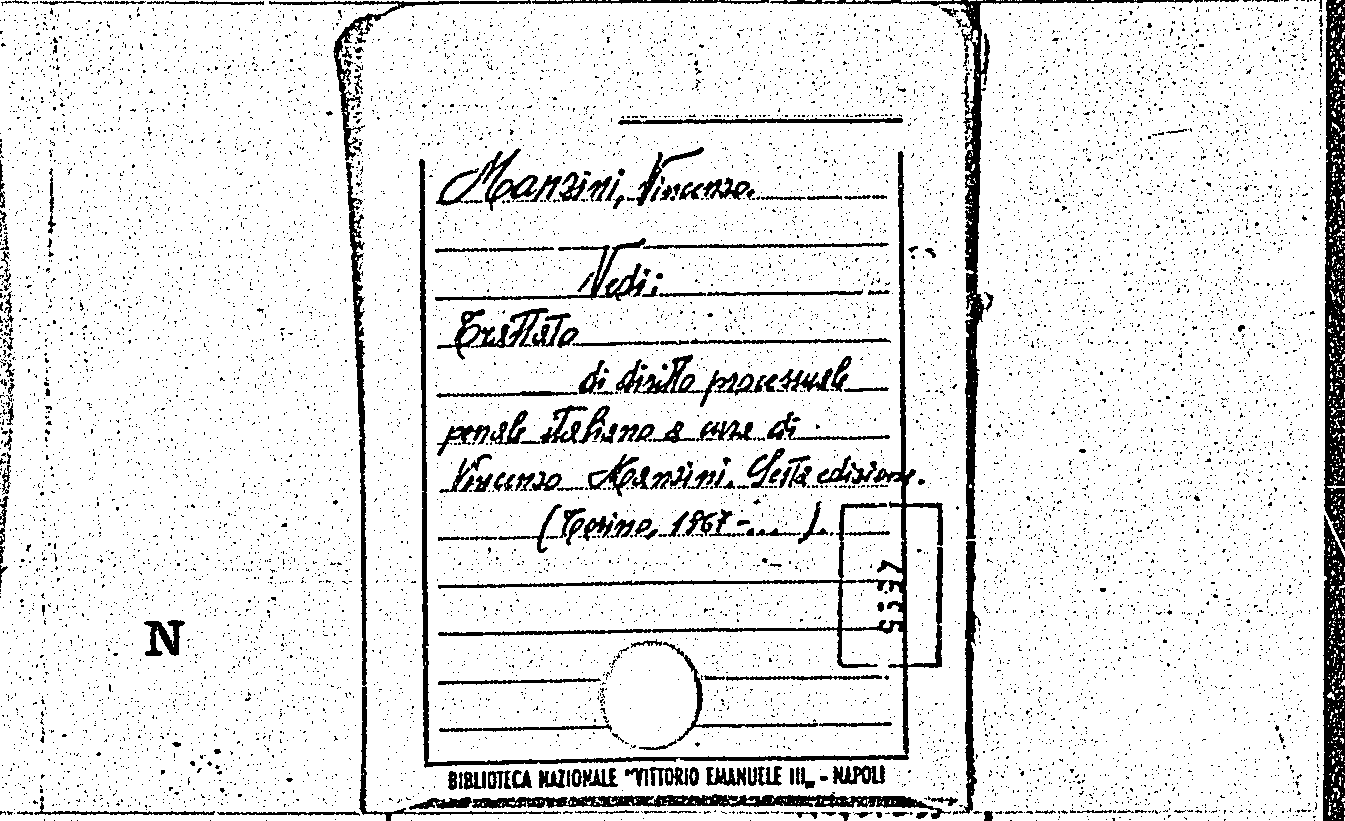 Manzini, Vincenzo.
Vedi:
Trattato
di diritto processuale
penale italiano a cura di
Vincenzo Manzini. Sesta edizione.
(Torino, 1967-...).
N
BIBLIOTECA NAZIONALE "VITTORIO EMANUELE III„ - NAPOLI